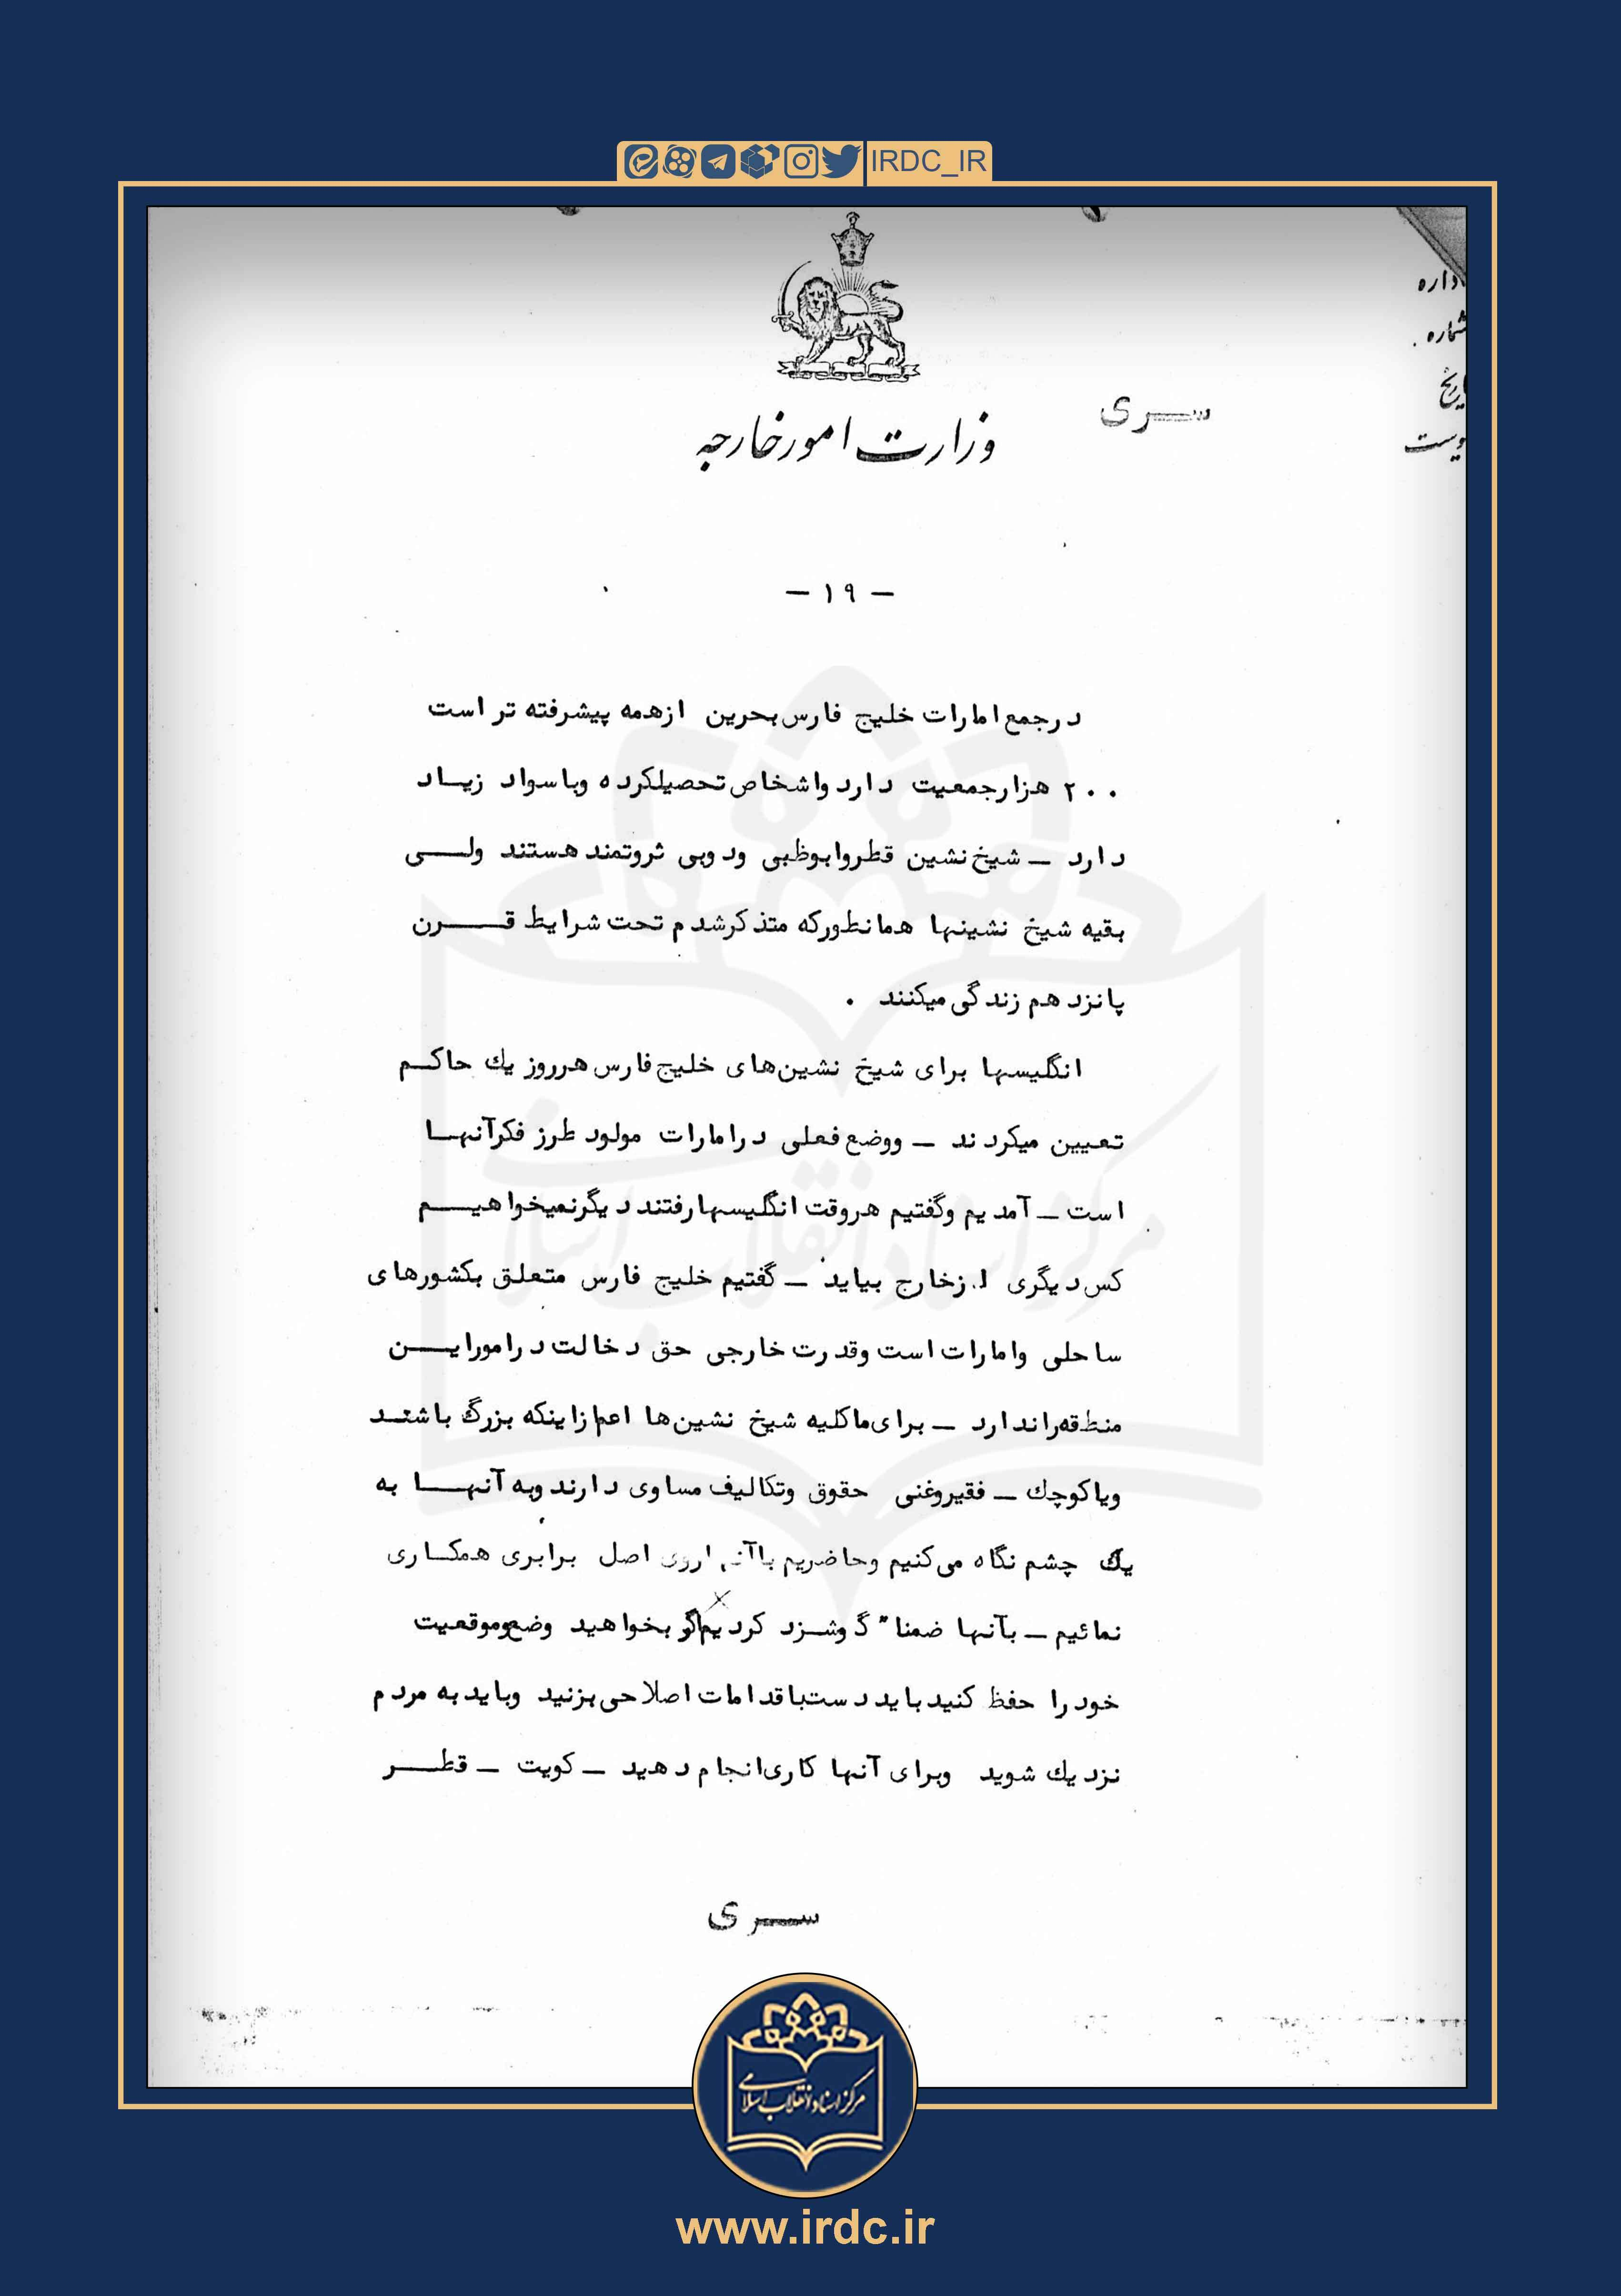 IRDC_IR
اداره
شماره
تاریخ
پیوست
سری
وزارت امور خارجه
- ۱۹ -
در جمع امارات خلیج فارس بحرین از همه پیشرفته تر است
۲۰۰ هزار جمعیت دارد و اشخاص تحصیلکرده و با سواد زیاد
دارد – شیخ نشین قطر و ابوظبی و دوبی ثروتمند هستند ولی
بقیه شیخ نشینها همانطور که متذکر شدم تحت شرایط قرن
پانزدهم زندگی میکنند .
انگلیسها برای شیخ نشین‌های خلیج فارس هر روز یك حاکم
تعیین میکردند – و وضع فعلی در امارات مولود طرز فکر آنها
است – آمدیم و گفتیم هر وقت انگلیسها رفتند دیگر نمیخواهیم
کس دیگری از خارج بیاید – گفتیم خلیج فارس متعلق بکشورهای
ساحلی و امارات است و قدرت خارجی حق دخالت در امور این
منطقه را ندارد – برای ما کلیه شیخ نشین‌ها اعم از اینکه بزرگ باشند
و یا کوچك – فقیر و غنی حقوق و تکالیف مساوی دارند و به آنها به
یك چشم نگاه می‌کنیم و حاضریم با آنها روی اصل برابری همکاری
نمائیم – بآنها ضمنا" گوشزد کردیم اگر بخواهید وضع و موقعیت
خود را حفظ کنید باید دست باقدامات اصلاحی بزنید و باید به مردم
نزدیك شوید و برای آنها کاری انجام دهید – کویت – قطر
سری
مرکز اسناد انقلاب اسلامی
www.irdc.ir